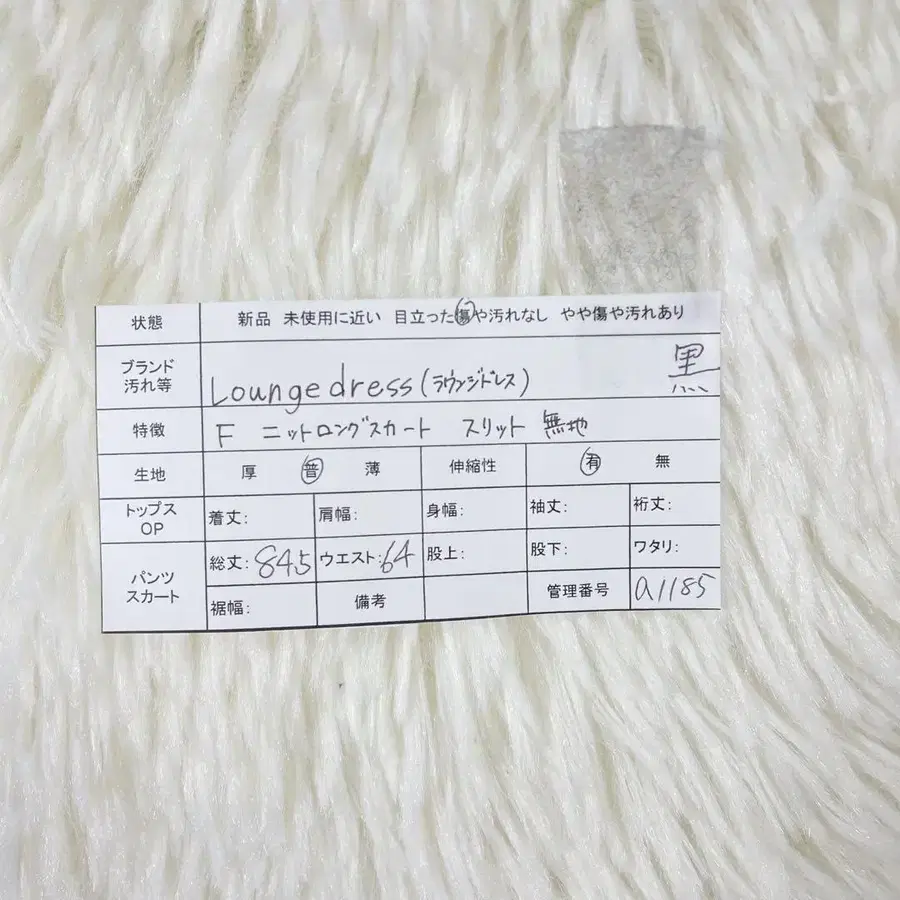 状態 新品 未使用に近い 目立った傷や汚れなし やや傷や汚れあり
ブランド 汚れ等 Lounge dress(ラウンジドレス) 黒
特徴 F ニットロングスカート スリット 無地
生地 厚 普 薄 伸縮性 有 無
トップス OP 着丈: 肩幅: 身幅: 袖丈: 裄丈:
パンツ スカート 総丈:84.5 ウエスト:64 股上: 股下: ワタリ:
裾幅: 備考 管理番号 a1185